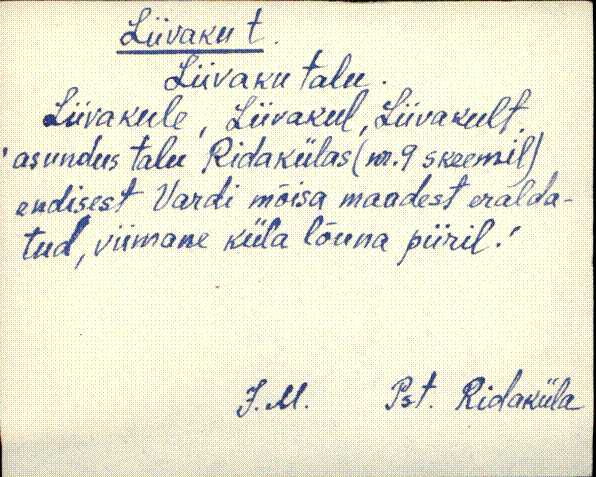 Liivaku t.
Liivaku talu.
Liivakule, Liivakul, Liivakult.
'asundus talu Ridakülas (nr. 9 skeemil)
endisest Vardi mõisa maadest eralda-
tud, viimane küla lõuna piiril.'
J. M. Pst. Ridaküla